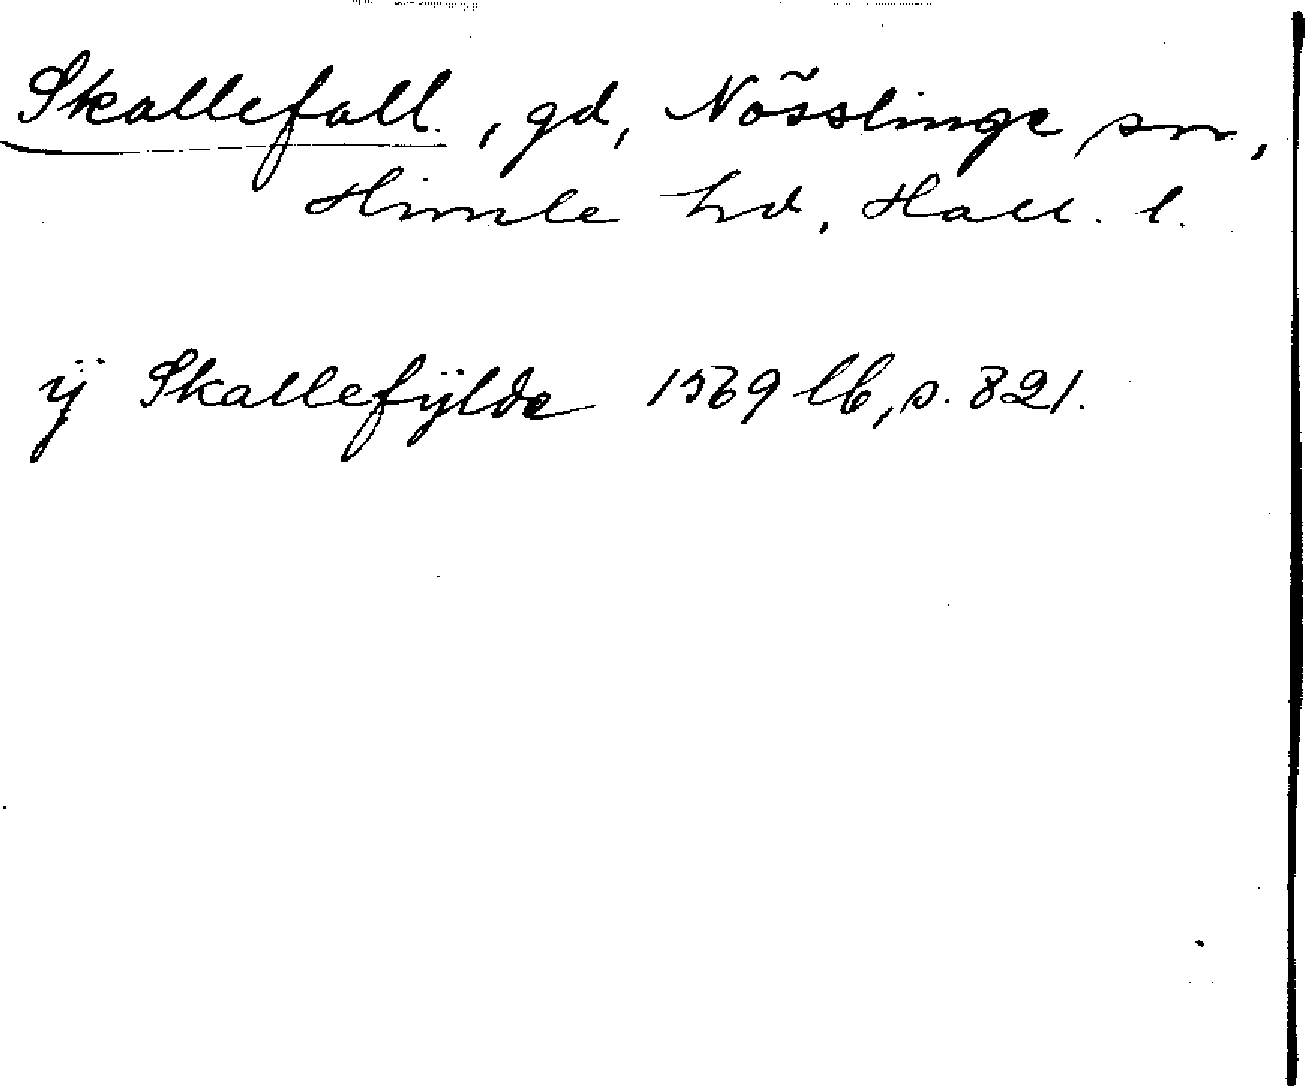 Skallefall, gd, Nösslinge sn,
Himle hd, Hall. l.
ÿ Skallefÿlde 1569 lb, s. 821.